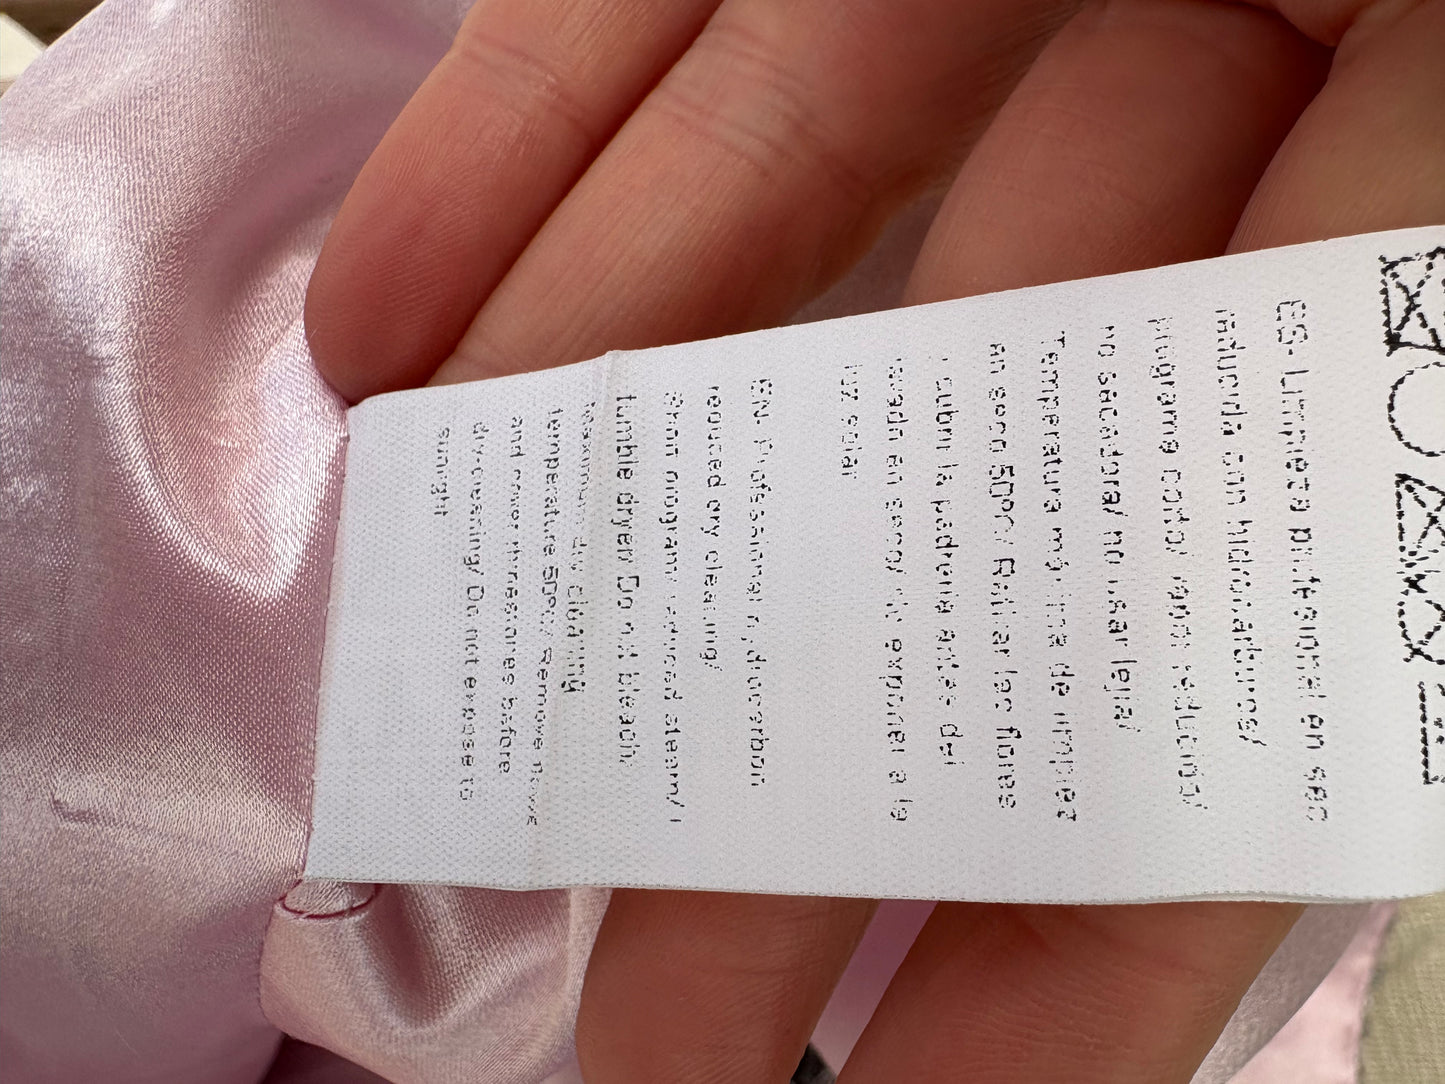 ES- Limpieza profesional en seco
reducida con hidrocarburos/
programa corto/ vapor reducido/
no secadora/ no usar lejia/
Temperatura máxima de limpieza
en seco 50ºC/ Retirar las flores
cubrir la pedrería antes del
lavado en seco/ No exponer a la
luz solar
EN- Professional hydrocarbon
reduced dry cleaning/
Short program/ reduced steam/
tumble dryer/ Do not bleach/
Maximum dry cleaning
temperature 50ºC/ Remove flowers
and cover rhinestones before
dry-cleaning/ Do not expose to
sunlight